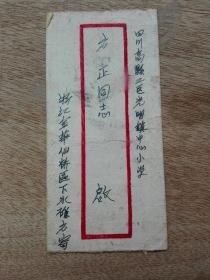 四川高县二区光明镇中心小学
方正同志 启
浙江金华仙桥区下水碓方寄